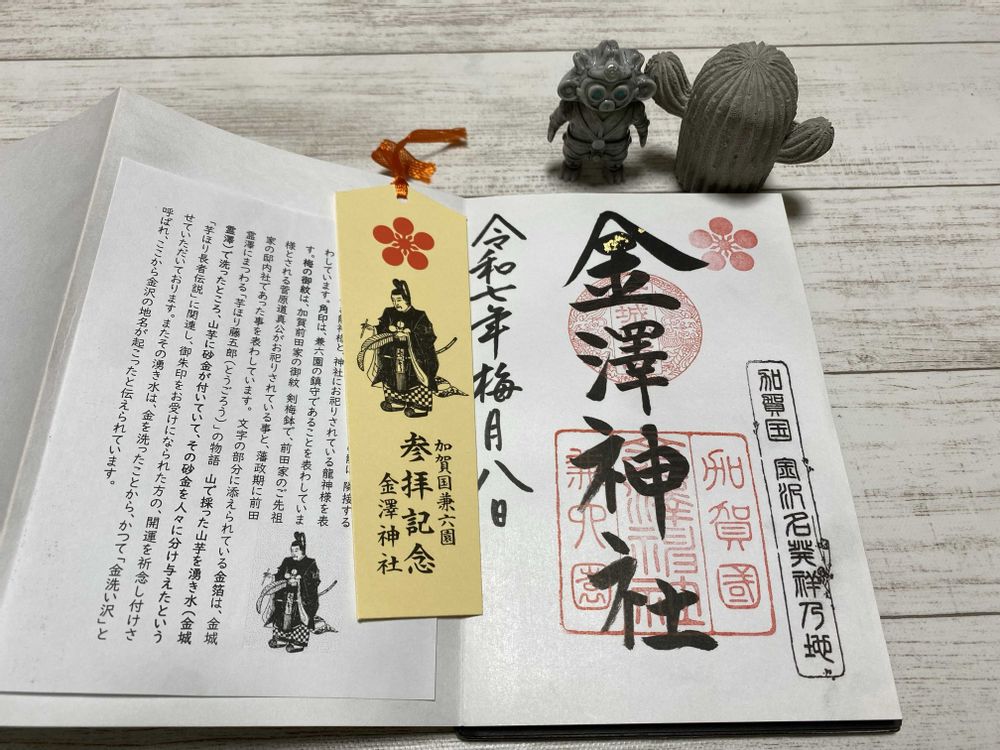 加賀国 金沢名発祥乃地
金澤神社
加賀國
兼六園
令和七年梅月八日
加賀国兼六園
参拝記念
金澤神社
隣接する
龍神様と、神社にお祀りされている龍神様を表
わしています。角印は、兼六園の鎮守であることを表わしていま
す。梅の御紋は、加賀前田家の御紋 剣梅鉢で、前田家のご先祖
様とされる菅原道真公がお祀りされている事と、藩政期に前田
家の邸内社であった事を表わしています。文字の部分に添えられている金箔は、金城
霊澤にまつわる「芋ほり藤五郎（とうごろう）」の物語 山で採った山芋を湧き水（金城
霊澤）で洗ったところ、山芋に砂金が付いていて、その砂金を人々に分け与えたという
「芋ほり長者伝説」に関連し、御朱印をお受けになられた方の、開運を祈念し付けさ
せていただいております。またその湧き水は、金を洗ったことから、かつて「金洗い沢」と
呼ばれ、ここから金沢の地名が起こったと伝えられています。